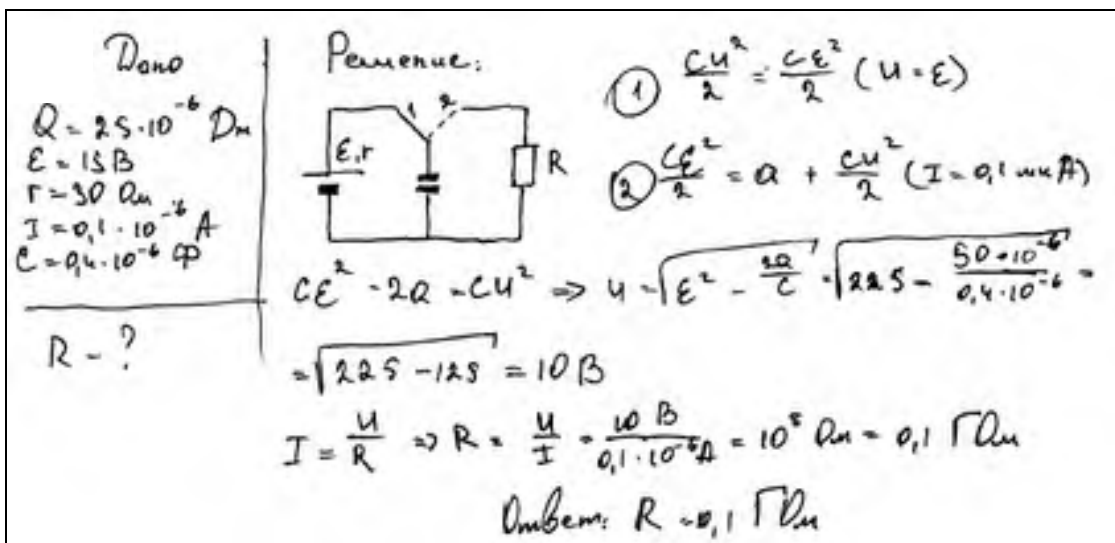 Дано
Q = 25·10⁻⁶ Дж
ε = 15 В
r = 30 Ом
I = 0,1·10⁻⁶ А
C = 0,4·10⁻⁶ Ф
R - ?
Решение:
1 2
ε, r
R
① CU²/2 = Cε²/2 (U = ε)
② Cε²/2 = Q + CU²/2 (I = 0,1 мкА)
Cε² - 2Q = CU² ⇒ U = √(ε² - 2Q/C) = √(225 - 50·10⁻⁶/0,4·10⁻⁶) =
= √(225 - 125) = 10 В
I = U/R ⇒ R = U/I = 10 В/0,1·10⁻⁶ А = 10⁸ Ом = 0,1 ГОм
Ответ: R = 0,1 ГОм